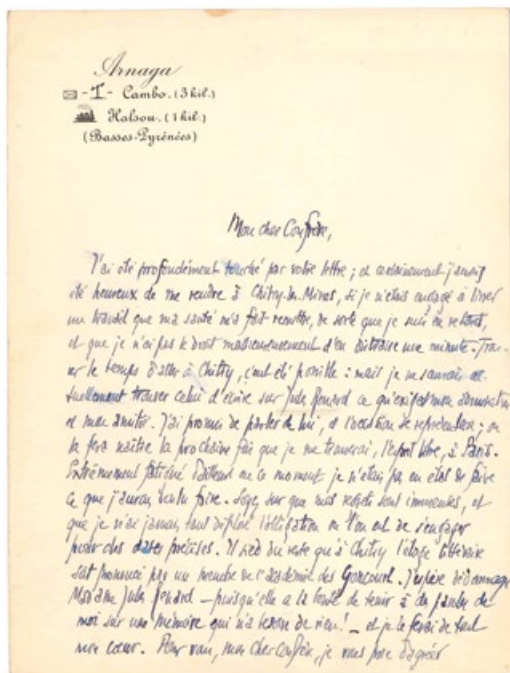 Arnaga
-T- Cambo. (3 kil.)
Halsou. (1 kil.)
(Basses-Pyrénées)
Mon cher Confrère,
J'ai été profondément touché par votre lettre ; et certainement j'aurais
été heureux de me rendre à Chitry-les-Mines, si je n'étais engagé à livrer
un travail que ma santé m'a fait remettre, de sorte que je suis en retard,
et que je n'ai pas le droit malheureusement d'en distraire une minute. Trou-
ver le temps d'aller à Chitry, c'eût été possible : mais je ne saurais ac-
tuellement trouver celui d'écrire sur Jules Renard ce qu'exigent mon admiration
et mon amitié. J'ai promis de parler de lui, et l'occasion se représentera ; on
la fera naître la prochaine fois que je me trouverai, l'esprit libre, à Paris.
Extrêmement fatigué d'ailleurs en ce moment je n'étais pas en état de faire
ce que j'aurais voulu faire. Soyez sûr que mes regrets sont immenses, et
que je n'ai jamais tant déploré l'obligation où l'on est de s'engager
pour des dates précises. Il sied du reste qu'à Chitry l'éloge littéraire
soit prononcé par un membre de l'académie des Goncourt. J'espère dédommager
Madame Jules Renard — puisqu'elle a la bonté de tenir à des paroles de
moi sur une mémoire qui n'a besoin de rien ! — et je le ferai de tout
mon cœur. Pour vous, mon cher Confrère, je vous prie d'agréer